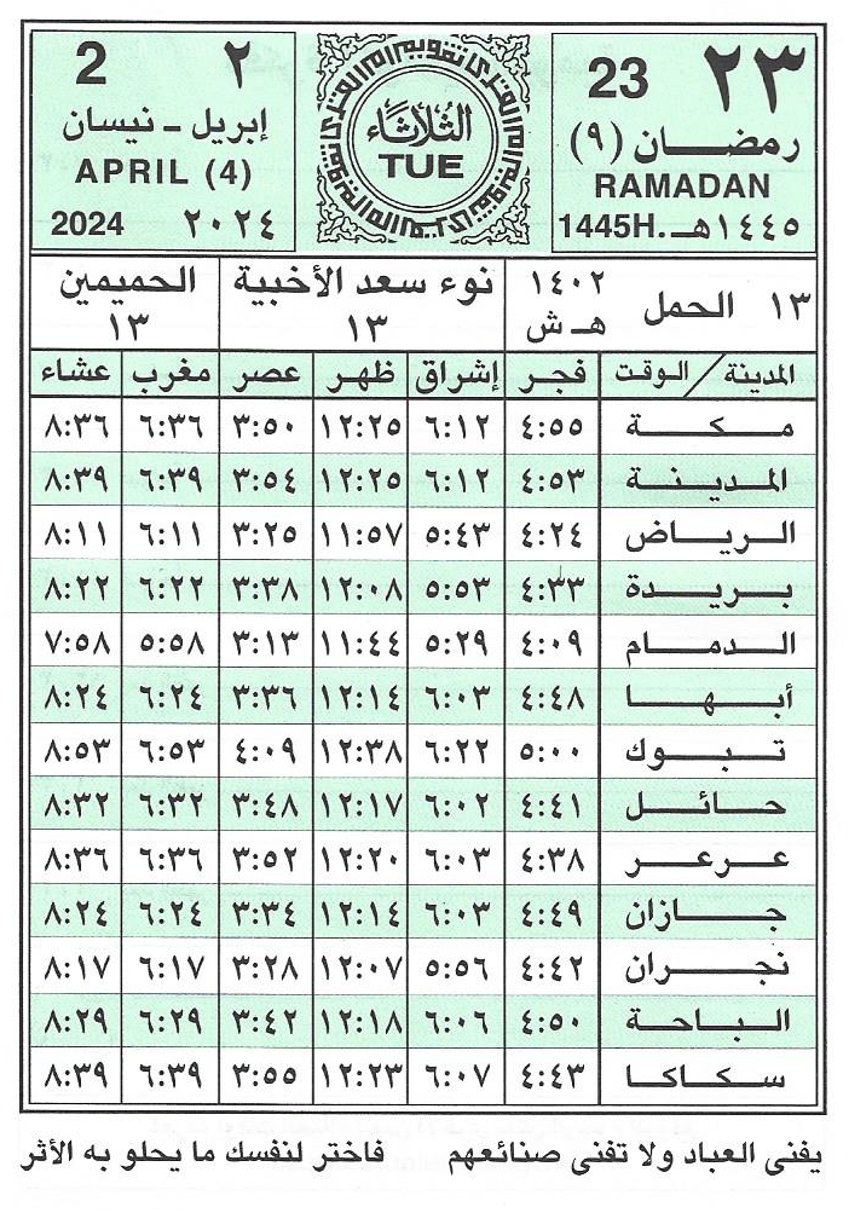 ٢٣ 23
رمضان (٩)
RAMADAN
١٤٤٥هـ 1445H.
الثلاثاء
TUE
٢ 2
إبريل - نيسان
APRIL (4)
2024 ٢٠٢٤
١٣ الحمل ١٤٠٢ هـ ش
نوء سعد الأخبية ١٣
الحميمين ١٣
المدينة / الوقت فجر إشراق ظهر عصر مغرب عشاء
مكة ٤:٥٥ ٦:١٢ ١٢:٢٥ ٣:٥٠ ٦:٣٦ ٨:٣٦
المدينة ٤:٥٣ ٦:١٢ ١٢:٢٥ ٣:٥٤ ٦:٣٩ ٨:٣٩
الرياض ٤:٢٤ ٥:٤٣ ١١:٥٧ ٣:٢٥ ٦:١١ ٨:١١
بريدة ٤:٣٣ ٥:٥٣ ١٢:٠٨ ٣:٣٨ ٦:٢٢ ٨:٢٢
الدمام ٤:٠٩ ٥:٢٩ ١١:٤٤ ٣:١٣ ٥:٥٨ ٧:٥٨
أبها ٤:٤٨ ٦:٠٣ ١٢:١٤ ٣:٣٦ ٦:٢٤ ٨:٢٤
تبوك ٥:٠٠ ٦:٢٢ ١٢:٣٨ ٤:٠٩ ٦:٥٣ ٨:٥٣
حائل ٤:٤١ ٦:٠٢ ١٢:١٧ ٣:٤٨ ٦:٣٢ ٨:٣٢
عرعر ٤:٣٨ ٦:٠٣ ١٢:٢٠ ٣:٥٢ ٦:٣٦ ٨:٣٦
جازان ٤:٤٩ ٦:٠٣ ١٢:١٤ ٣:٣٤ ٦:٢٤ ٨:٢٤
نجران ٤:٤٢ ٥:٥٦ ١٢:٠٧ ٣:٢٨ ٦:١٧ ٨:١٧
الباحة ٤:٥٠ ٦:٠٦ ١٢:١٨ ٣:٤٢ ٦:٢٩ ٨:٢٩
سكاكا ٤:٤٣ ٦:٠٧ ١٢:٢٣ ٣:٥٥ ٦:٣٩ ٨:٣٩
يفنى العباد ولا تفنى صنائعهم فاختر لنفسك ما يحلو به الأثر